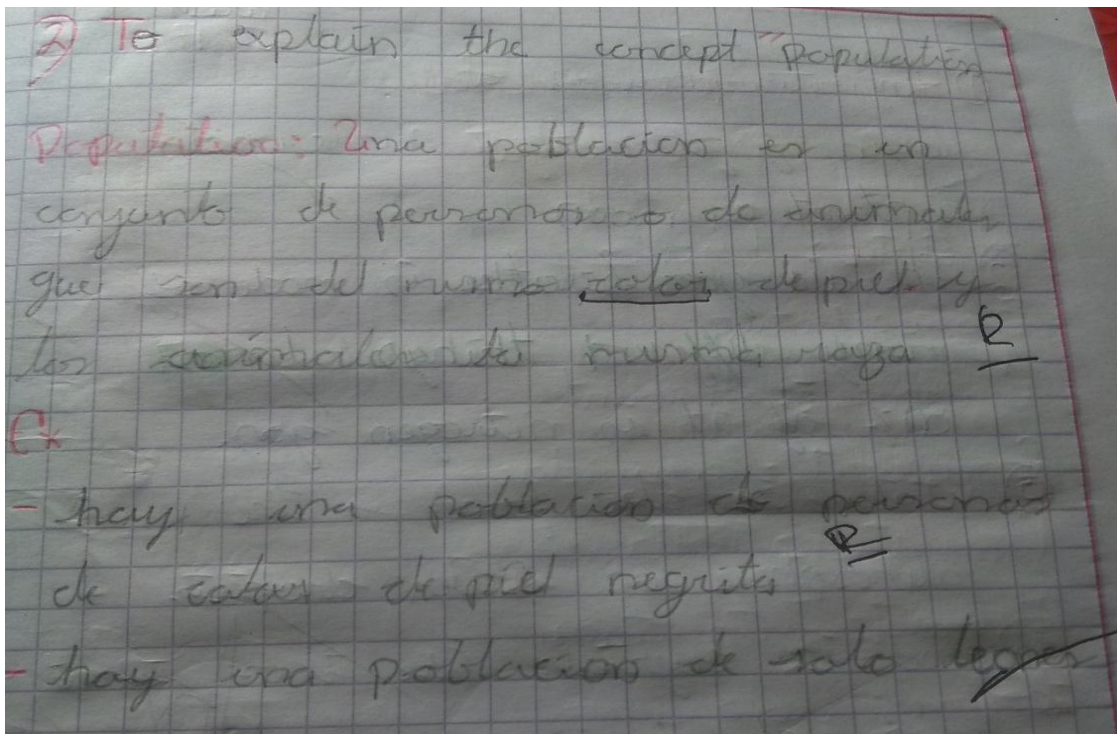 2) To explain the concept "population
Population: Una poblacion es un
conjunto de personas o de animales
que son del mismo color de piel y
los animales de misma raza
R
Ex
- hay una poblacion de personas
R
de color de piel negrita
- hay una poblacion de solo leones